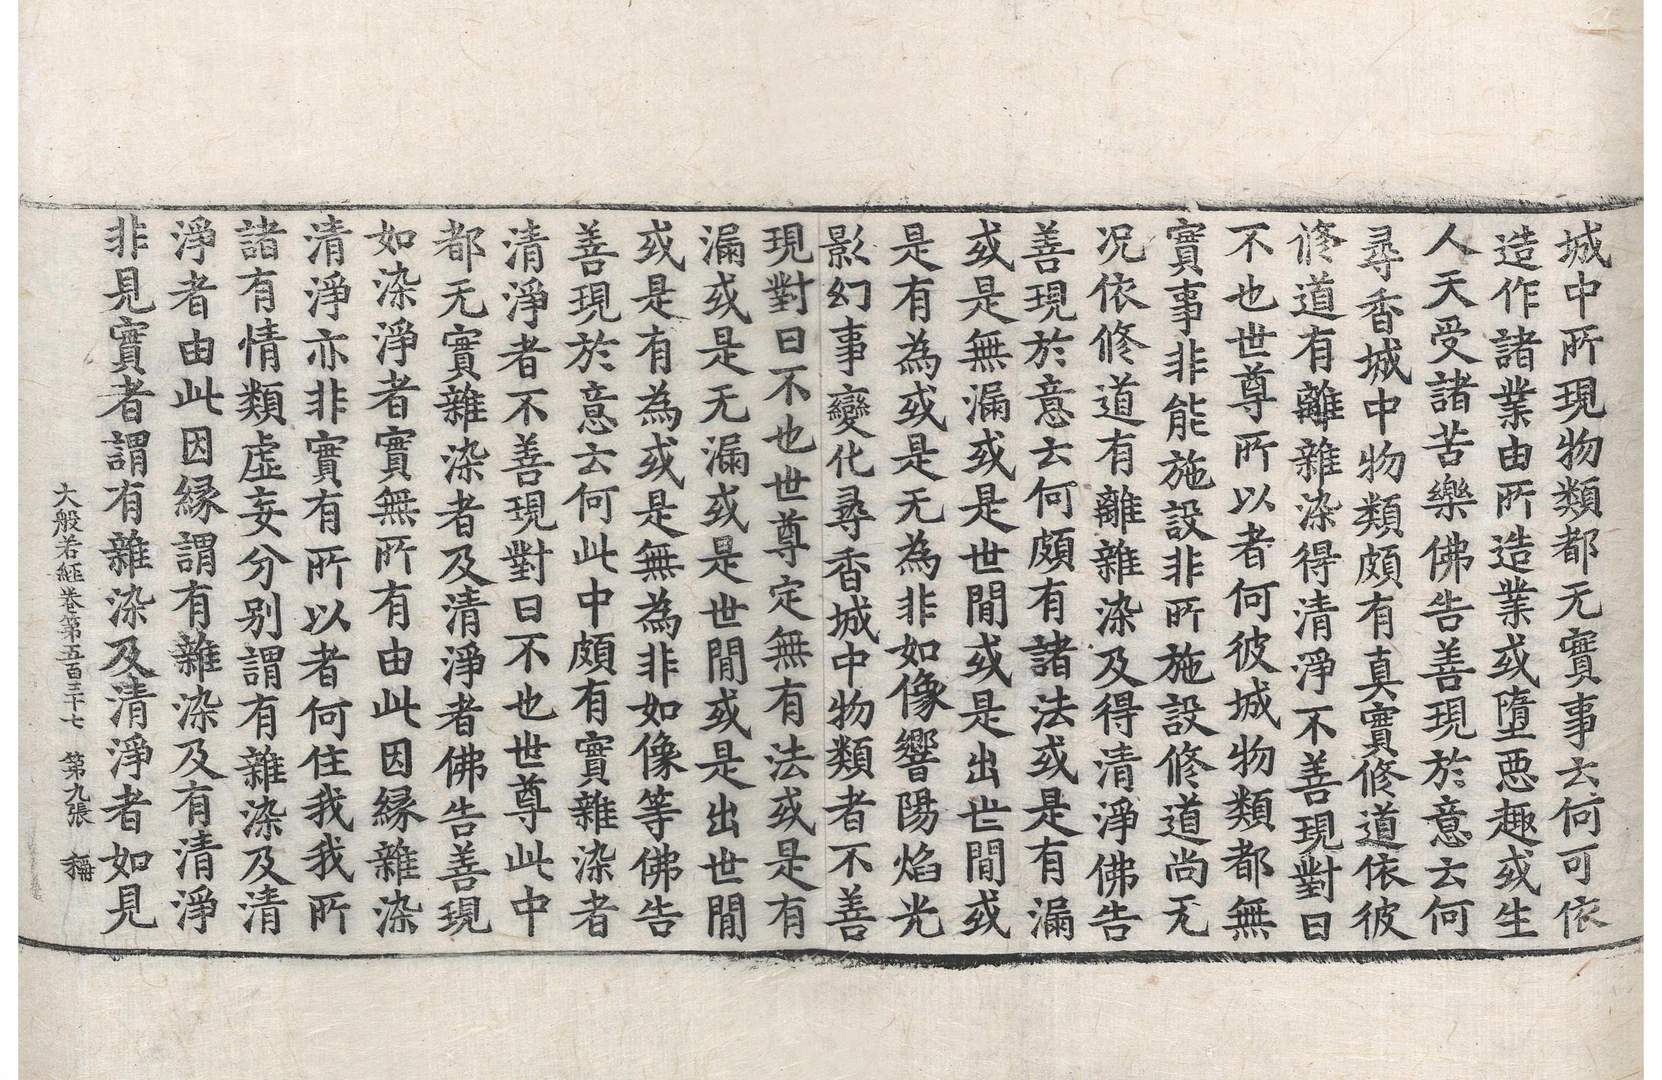 城中所現物類都无實事云何可依
造作諸業由所造業或墮惡趣或生
人天受諸苦樂佛告善現於意云何
尋香城中物類頗有真實修道依彼
修道有離雜染得清淨不善現對曰
不也世尊所以者何彼城物類都無
實事非能施設非所施設修道尚无
况依修道有離雜染及得清淨佛告
善現於意云何頗有諸法或是有漏
或是無漏或是世間或是出世間或
是有為或是无為非如像響陽焰光
影幻事變化尋香城中物類者不善
現對曰不也世尊定無有法或是有
漏或是无漏或是世間或是出世間
或是有為或是無為非如像等佛告
善現於意云何此中頗有實雜染者
清淨者不善現對曰不也世尊此中
都无實雜染者及清淨者佛告善現
如染淨者實無所有由此因縁雜染
清淨亦非實有所以者何住我我所
諸有情類虛妄分別謂有雜染及清
淨者由此因縁謂有雜染及有清淨
非見實者謂有雜染及清淨者如見
大般若經卷第五百三十七 第九張 稱